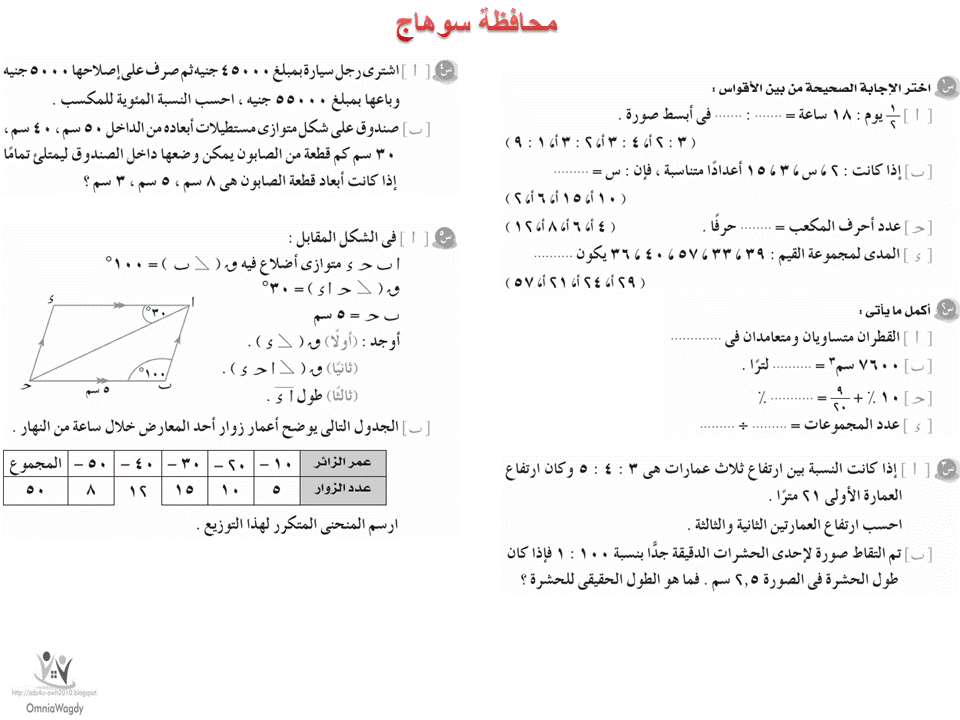 محافظة سوهاج
س١ اختر الإجابة الصحيحة من بين الأقواس :
[ أ ] ١/٢ يوم : ١٨ ساعة = ...... : ...... فى أبسط صورة .
( ٣ : ٢ أ، ٤ : ٣ أ، ٢ : ٣ أ، ١ : ٩ )
[ب] إذا كانت : ٢ ، س ، ٣ ، ١٥ أعدادًا متناسبة ، فإن : س = .........
( ١٠ أ، ١٥ أ، ٦ أ، ٢ )
[حـ] عدد أحرف المكعب = ........ حرفًا . ( ٤ أ، ٦ أ، ٨ أ، ١٢ )
[ ء ] المدى لمجموعة القيم : ٣٩ ، ٣٣ ، ٥٧ ، ٤٠ ، ٣٦ يكون ..........
( ٢٩ أ، ٢٤ أ، ٢١ أ، ٥٧ )
س٢ أكمل ما يأتى :
[ أ ] القطران متساويان ومتعامدان فى .............
[ب] ٧٦٠٠ سم٣ = .......... لترًا .
[حـ] ١٠ ٪ + ٩/٢٠ = ........... ٪
[ ء ] عدد المجموعات = ......... ÷ .........
س٣ [ أ ] إذا كانت النسبة بين ارتفاع ثلاث عمارات هى ٣ : ٤ : ٥ وكان ارتفاع
العمارة الأولى ٢١ مترًا .
احسب ارتفاع العمارتين الثانية والثالثة .
[ب] تم التقاط صورة لإحدى الحشرات الدقيقة جدًّا بنسبة ١٠٠ : ١ فإذا كان
طول الحشرة فى الصورة ٢,٥ سم . فما هو الطول الحقيقى للحشرة ؟
س٤ [ أ ] اشترى رجل سيارة بمبلغ ٤٥٠٠٠ جنيه ثم صرف على إصلاحها ٥٠٠٠ جنيه
وباعها بمبلغ ٥٥٠٠٠ جنيه ، احسب النسبة المئوية للمكسب .
[ب] صندوق على شكل متوازى مستطيلات أبعاده من الداخل ٥٠ سم ، ٤٠ سم ،
٣٠ سم كم قطعة من الصابون يمكن وضعها داخل الصندوق ليمتلئ تمامًا
إذا كانت أبعاد قطعة الصابون هى ٨ سم ، ٥ سم ، ٣ سم ؟
س٥ [ أ ] فى الشكل المقابل :
أ ب حـ ء متوازى أضلاع فيه ق ( ∠ ب ) = ١٠٠°
ق ( ∠ حـ أ ء ) = ٣٠°
ب حـ = ٥ سم
أوجد : (أولًا) ق ( ∠ ء ) .
(ثانيًا) ق ( ∠ أ حـ ء ) .
(ثالثًا) طول أ ء .
ء
أ
٣٠°
١٠٠°
حـ
ب
٥ سم
[ب] الجدول التالى يوضح أعمار زوار أحد المعارض خلال ساعة من النهار .
عمر الزائر ١٠ – ٢٠ – ٣٠ – ٤٠ – ٥٠ – المجموع
عدد الزوار ٥ ١٠ ١٥ ١٢ ٨ ٥٠
ارسم المنحنى المتكرر لهذا التوزيع .
http://adz4u-owh2010.blogspot.
OmniaWagdy